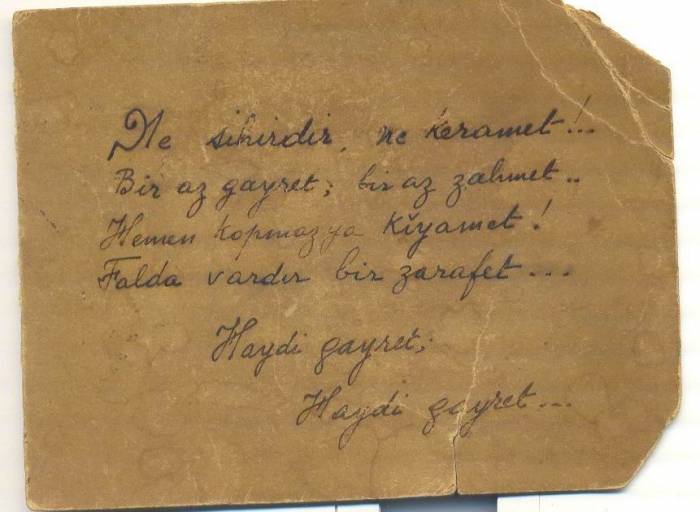 Ne sihirdir, ne keramet!..
Bir az gayret; bir az zahmet..
Hemen kopmaz ya kıyamet!
Falda vardır bir zarafet...
Haydi gayret;
Haydi gayret...